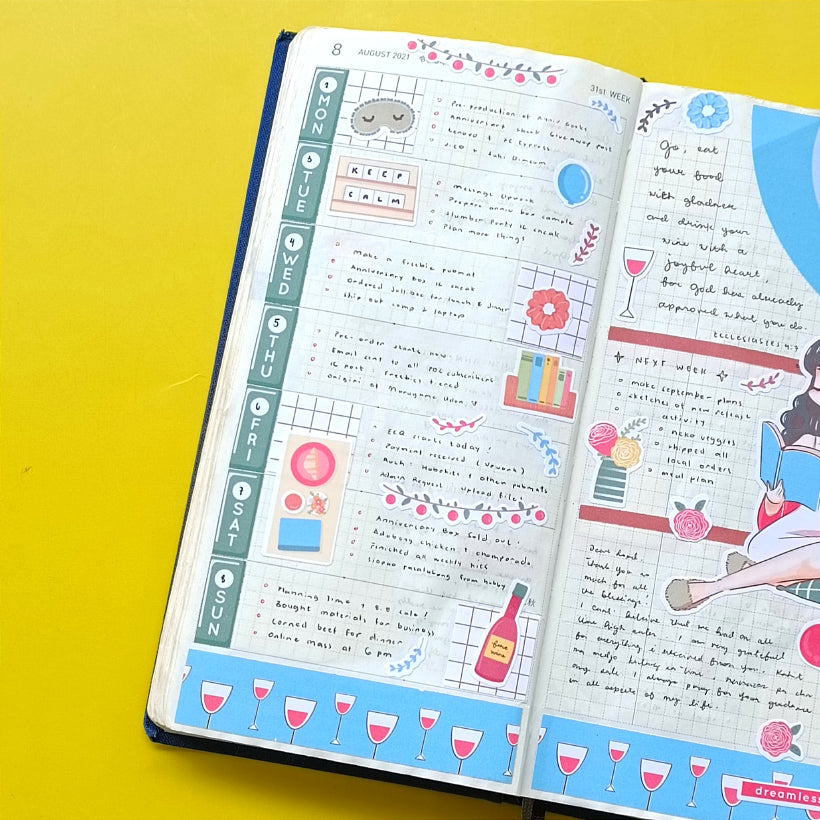 8 AUGUST 2021
31st WEEK
MON
Pre-production of Annie Books
Anniversary Shopee Giveaway post
TUE
3
KEEP
CALM
Message Upwork
Prepare anniv box sample
Slumber Party IG sneak
Plan more things
4
WED
Make a freebie pubmat
Anniversary Box IG sneak
Ordered Jollibee for lunch & dinner
Ship out lamp & laptop
5
THU
Pre-order starts now
Email sent to all POC subscribers
IG post: Freebies tiered
Origin of Marugame Udon
6
FRI
ECQ starts today!
Payment received (Upwork)
+ other pubmats
Admin Request: Upload files
7
SAT
Anniversary Box sold out.
Adobong chicken & champorado.
Finished all weekly kits
from hobby
8
SUN
Planning time + 8.8 sale!
Bought materials for business
Corned beef for dinner
Online mass at 6 pm
fine
wine
Go, eat
your food
with gladness
and drink your
wine with a
joyful heart,
for God has already
approved what you do.
Ecclesiastes 9:7
NEXT WEEK
make september plans
sketches of new release
activity
neko veggies
shipped all
local orders
meal plan
Dear Lord,
thank you so
much for all
the blessings.
I can't believe that we had an all
time high sales. I am very grateful
for everything I received from you. Kahit
na medyo
only ate. I always pray for your guidance
in all aspects of my life.
dreamless